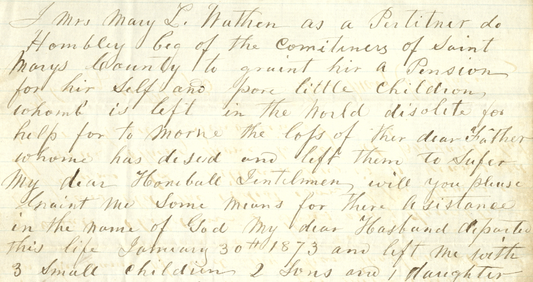 I Mrs Mary L. Wathen as a Pertitner do
Hombley beg of the comitiners of Saint
Marys County to graint hir a Pension
for hir Self and pore little children
whomb is left in the World disolite for
help for to morne the loss of ther dear Father
whome has desed and left them to Sufer
My dear Honebull Jentelmen will you please
Graint me Some means for there asistance
in the name of God My dear Hasband departed
this life January 30th 1873 and left me with
3 Small children 2 Sons and 1 daughter